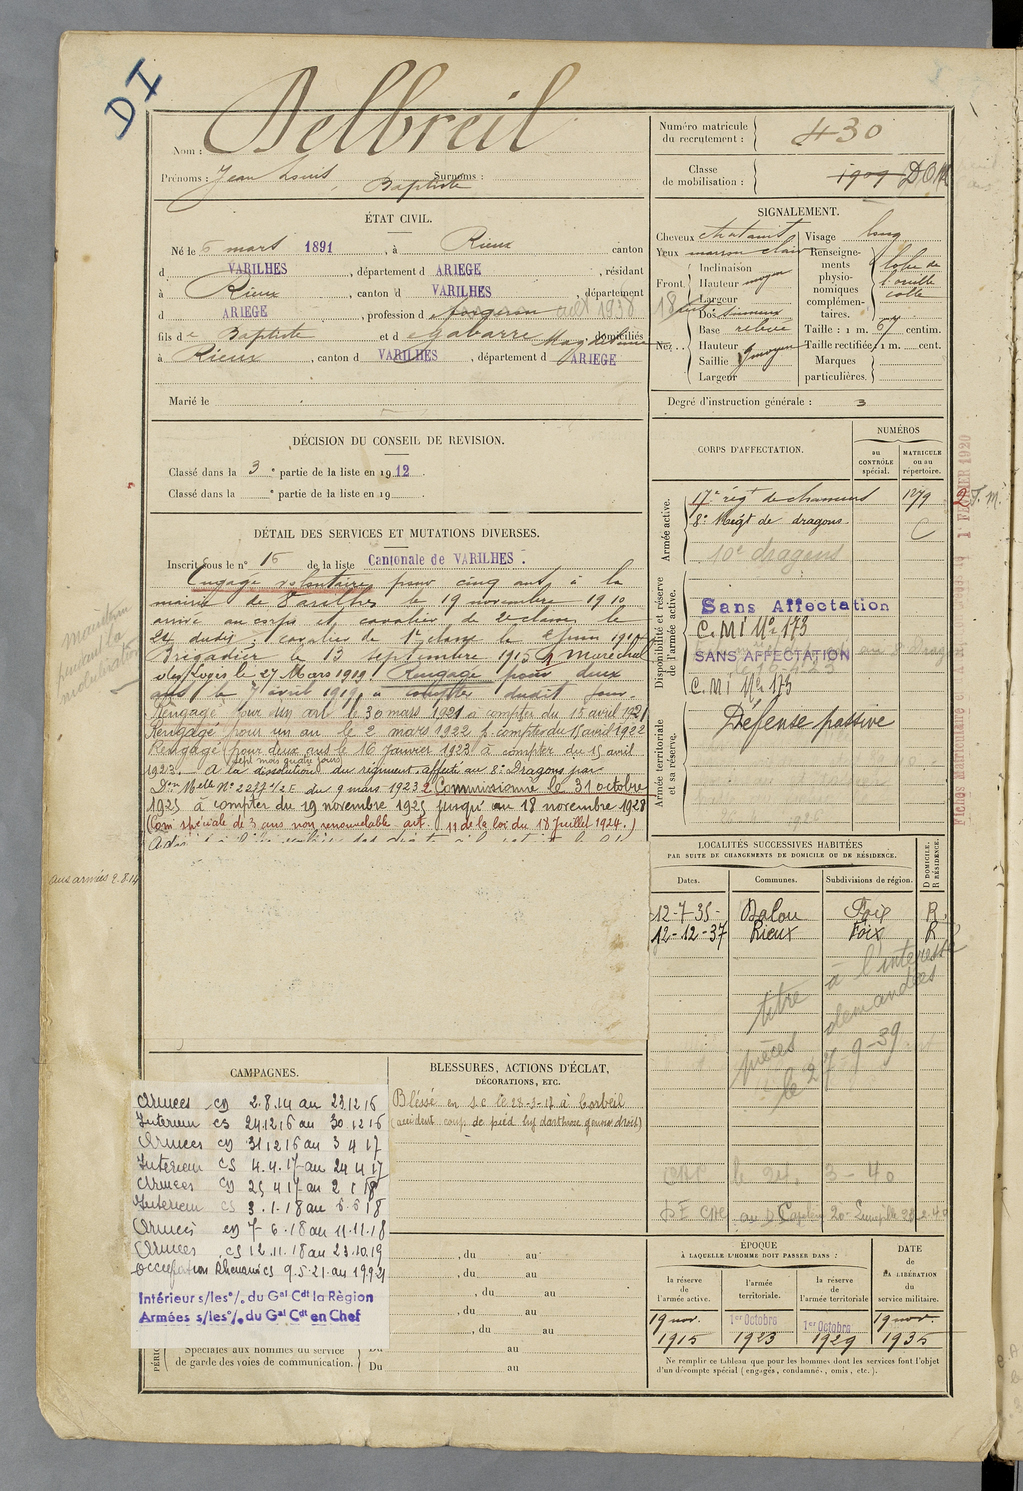 DI
Nom : Delbreil
Prénoms : Jean Louis Baptiste Surnoms :
Numéro matricule du recrutement : 430
Classe de mobilisation : 1909 DOM
ÉTAT CIVIL.
Né le 6 mars 1891, à Rieux canton
d VARILHES, département d ARIEGE, résidant
à Rieux, canton d VARILHES, département
d ARIEGE, profession de forgeron cult 1938
fils de Baptiste et de Gabarre Magdeleine domiciliés
à Rieux, canton d VARILHES, département d ARIEGE
Marié le
SIGNALEMENT.
Cheveux chatains
Yeux marron clair
Front. Inclinaison
Hauteur moyen
Largeur
Nez. Dos sinueux
Base relevé
Hauteur moyen
Saillie
Largeur
Visage long
Renseignements physionomiques complémentaires. lobe de l'oreille collé
Taille : 1 m. 67 centim.
Taille rectifiée : 1 m. cent.
Marques particulières.
Degré d'instruction générale : 3
DÉCISION DU CONSEIL DE REVISION.
Classé dans la 3e partie de la liste en 1912.
Classé dans la e partie de la liste en 19
DÉTAIL DES SERVICES ET MUTATIONS DIVERSES.
Inscrit sous le n° 16 de la liste Cantonale de VARILHES.
Engagé volontaire pour cinq ans à la
mairie de Varilhes le 19 novembre 1910
arrivé au corps et cavalier de 2e classe le
24 dudit, cavalier de 1re classe le 2 juin
Brigadier le 13 septembre 1915 Maréchal
des Logis le 27 Mars 1919 Rengagé pour deux
ans le 7 avril 1919 à compter dudit jour.
Rengagé pour un an le 30 mars 1921 à compter du 15 avril 1921
Rengagé pour un an le 2 mars 1922 à compter du 15 avril 1922
Rengagé pour deux ans sept mois quatre jours le 16 janvier 1923 à compter du 15 avril
1923. A la dissolution du régiment, affecté au 8e Dragons par
Don Melle N° 2257 1/2 E du 9 mars 1923 Commissionné le 31 octobre
1925 à compter du 19 novembre 1925 jusqu'au 18 novembre 1928
(Com spéciale de 3 ans non renouvelable art. 11 de la loi du 18 Juillet 1924.)
aux armées 2.8.14
CORPS D'AFFECTATION.
NUMÉROS
au CONTRÔLE spécial.
MATRICULE ou au répertoire.
Armée active.
17e régt de chasseurs 1279
8e Régt de dragons. C
10e dragons
2 F.M.
1 FEVRIER 1920
Disponibilité et réserve de l'armée active.
Sans Affectation
C.M! N° 173
SANS AFFECTATION
C.M! N° 173
Armée territoriale et sa réserve.
Défense passive
LOCALITÉS SUCCESSIVES HABITÉES
PAR SUITE DE CHANGEMENTS DE DOMICILE OU DE RÉSIDENCE.
Dates. Communes. Subdivisions de région. D DOMICILE. R RÉSIDENCE.
12-7-35 - Dalou Foix R.
12-12-37 Rieux Foix R
titre à l'intéressé
pièces demandées
le 27-9-39
CAMPAGNES.
Armées CD 2.8.14 au 23.12.16
Intérieur CS 24.12.16 au 30 12 16
Armées CD 31 12 16 au 3 4 17
Intérieur CS 4.4.17 au 24 4 17
Armées CD 25 4 17 au 2 1 18
Intérieur CS 3.1.18 au 6.6 18
Armées CD 7-6.18 au 11.11.18
Armées CS 12.11.18 au 23.10.19
Occupation Rhénanie CS 9.5.21 au 19.9.21
Intérieur s/les °/. du Gal Cdt la Région
Armées s/les °/. du Gal Cdt en Chef
spéciales aux hommes du service
de garde des voies de communication.
BLESSURES, ACTIONS D'ÉCLAT,
DÉCORATIONS, ETC.
Blessé en S.C. le 28-3-17 à Corbeil
, du au
, du au
, du au
, du au
, du au
Du au
Du au
ÉPOQUE
À LAQUELLE L'HOMME DOIT PASSER DANS :
la réserve de l'armée active. l'armée territoriale. la réserve de l'armée territoriale
DATE de LA LIBÉRATION du service militaire.
19 nov. 1915
1er Octobre 1923
1er Octobre 1929
19 nov. 1935
Ne remplir ce tableau que pour les hommes dont les services font l'objet
d'un décompte spécial (engagés, condamnés, omis, etc.).